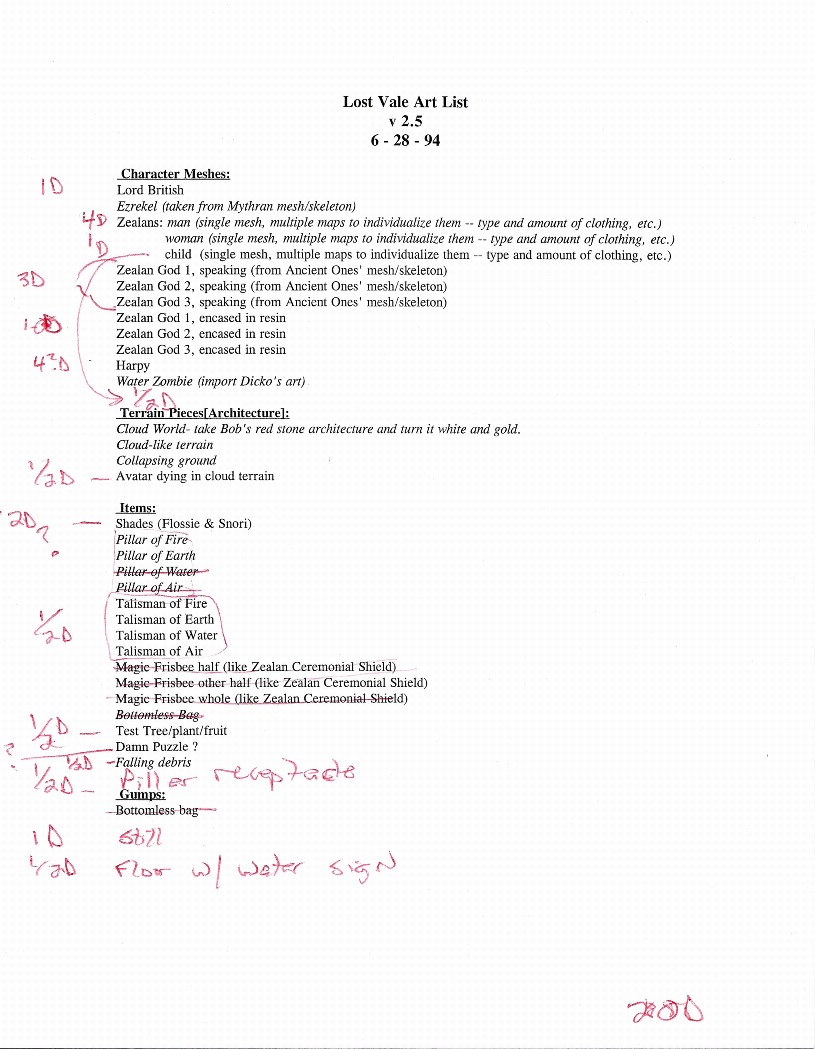 Lost Vale Art List
v 2.5
6 - 28 - 94
Character Meshes:
1D Lord British
Ezrekel (taken from Mythran mesh/skeleton)
4D Zealans: man (single mesh, multiple maps to individualize them -- type and amount of clothing, etc.)
1D woman (single mesh, multiple maps to individualize them -- type and amount of clothing, etc.)
child (single mesh, multiple maps to individualize them -- type and amount of clothing, etc.)
3D Zealan God 1, speaking (from Ancient Ones' mesh/skeleton)
Zealan God 2, speaking (from Ancient Ones' mesh/skeleton)
Zealan God 3, speaking (from Ancient Ones' mesh/skeleton)
Zealan God 1, encased in resin
Zealan God 2, encased in resin
Zealan God 3, encased in resin
4?D Harpy
Water Zombie (import Dicko's art)
1/2D
Terrain Pieces[Architecture]:
Cloud World- take Bob's red stone architecture and turn it white and gold.
Cloud-like terrain
Collapsing ground
1/2D — Avatar dying in cloud terrain
Items:
2D? — Shades (Flossie & Snori)
Pillar of Fire
Pillar of Earth
Pillar of Water
Pillar of Air
Talisman of Fire
Talisman of Earth
1/2D Talisman of Water
Talisman of Air
Magic Frisbee half (like Zealan Ceremonial Shield)
Magic Frisbee other half (like Zealan Ceremonial Shield)
Magic Frisbee whole (like Zealan Ceremonial Shield)
Bottomless Bag
1/2D — Test Tree/plant/fruit
? Damn Puzzle ?
1/2D Falling debris
1/2D — Piller receptacle
Gumps:
Bottomless bag
1D still
1/2D Floor w/ water sign
20D